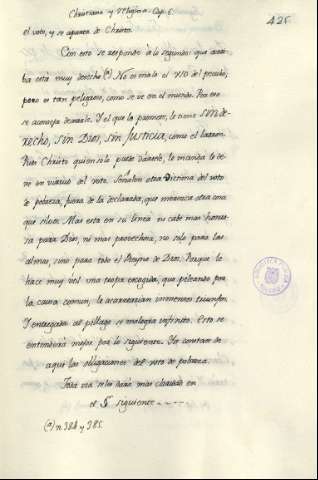 Christiano y Religioso. Cap. 6.
425
el voto, y se aparta de Christo.
Con esto se responde â lo segundo: que arri-
ba està muy derecho (a). No es mala el uso del peculio,
pero es tan peligroso, como se ve en el mundo. Por eso
se aconseja dexarle. Y el que lo promete, le tiene sin de-
recho, sin Dios, sin Justicia, como el ladron.
Pues Christo quien solo puede dàrselo, le manda lo de-
xe en virtud del voto. Señalan otra victima del voto
de pobreza, fuera de la declarada, que merezca otra co-
que ellos. Mas esta en su linea ni cabe mas honro-
sa para Dios, ni mas provechosa, no solo para las
almas, sino para todo el Reyno de Dios. Porque lo
hace muy util una tropa escogida, que peleando por
la causa comun, le acarrearian inmensos triunfos.
Y entregada al pillage se malogra infinito. Esto se
entenderà mejor por lo siguiente. Yo constan de
aqui las obligaciones del voto de pobreza.
Toda via se les darà mas claridad en
el §. siguiente
(a) n. 384 y 385.